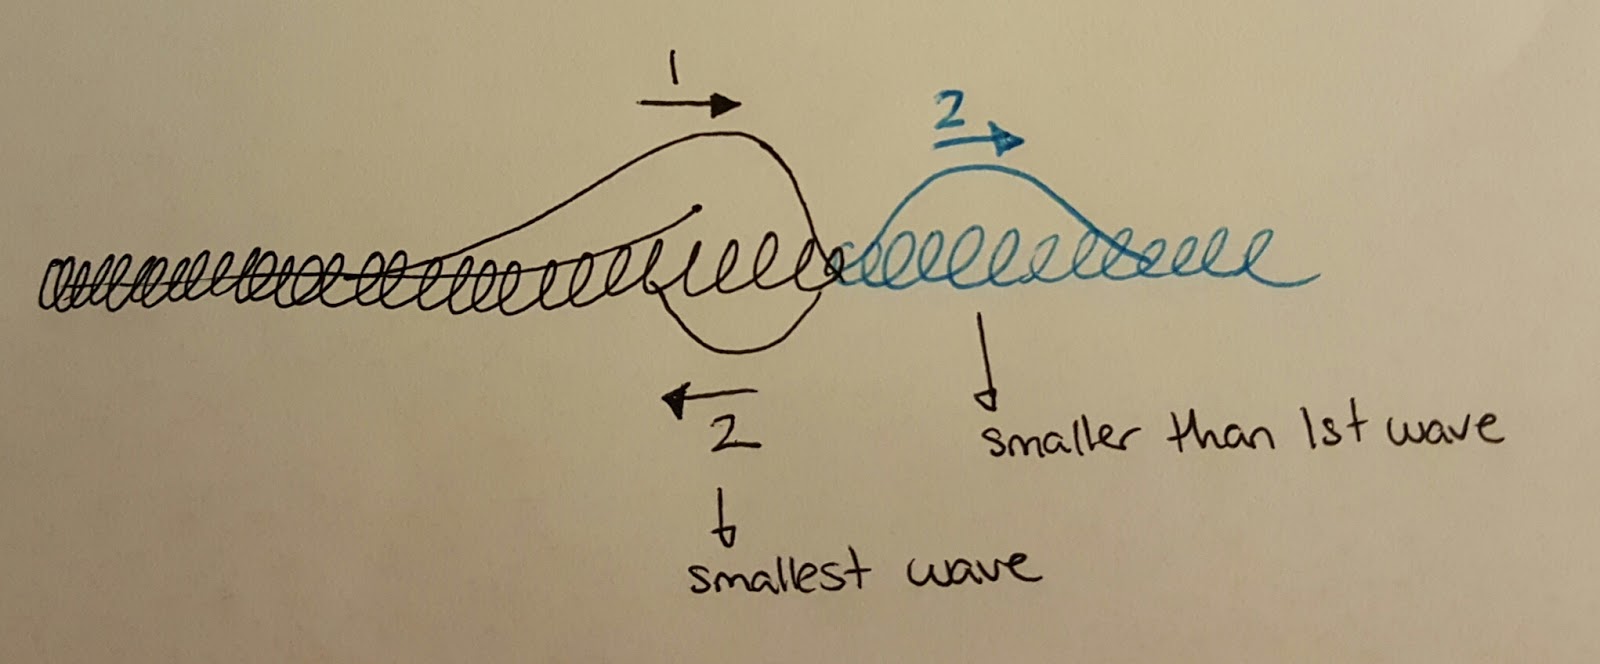 1
2
smaller than 1st wave
2
smallest wave